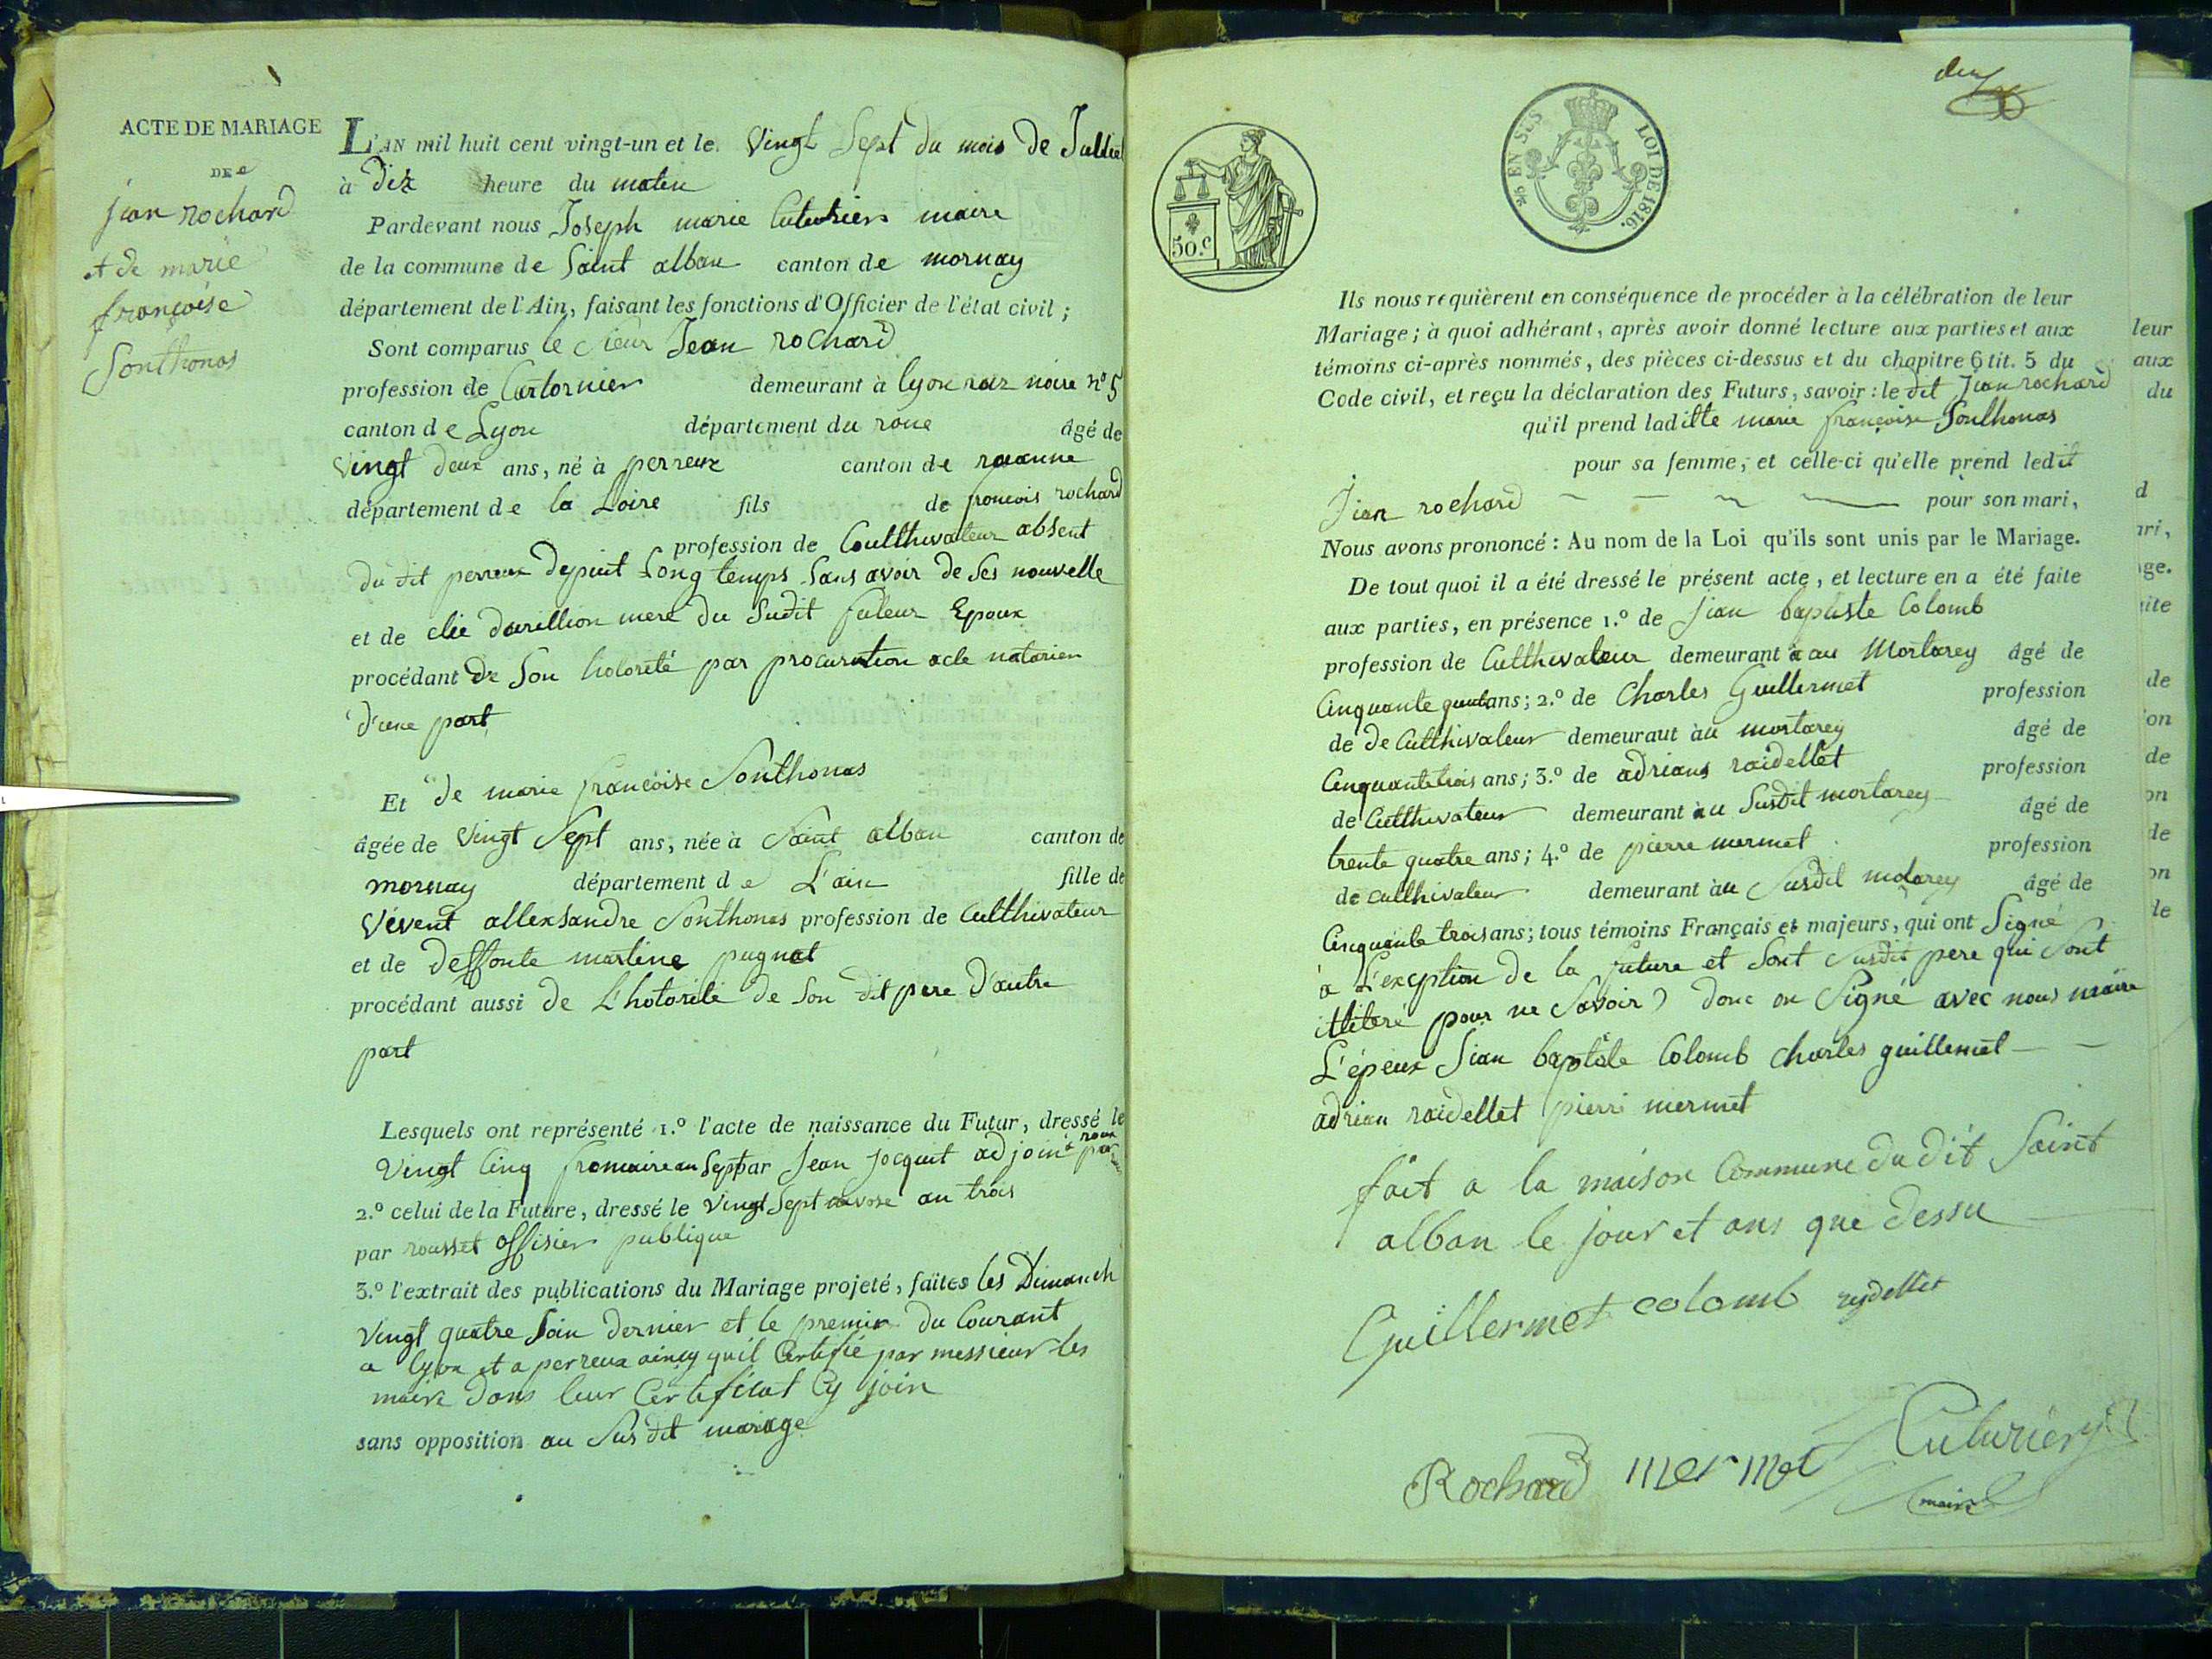 ACTE DE MARIAGE
DE
jean rochard
et de marie
françoise
Sonthonas
L'AN mil huit cent vingt-un et le vingt Sept du mois de Julliet
à dix heure du maten
Pardevant nous Joseph marie Cuturier maire
de la commune de Saint alban canton de mornay
département de l'Ain, faisant les fonctions d'Officier de l'état civil ;
Sont comparus le sieur Jean rochard
profession de Cartornier demeurant à lyon noire n° 5
canton de Lyon département du rone âgé de
vingt deux ans, né à perreux canton de roanne
département de la Loire fils de francois rochard
profession de Coulthivateur absent
du dit perreux depuit Long temps Sans avoir de Ses nouvelle
et de mere du Sudit futeur Epoux
procédant de Son hotorité par procuration acte notarien
d'une part
Et de marie francoise Sonthonas
âgée de vingt Sept ans, née à Saint alban canton de
mornay département de L'ain fille de
vévent allexsandre Sonthonas profession de Culthivateur
et de deffonte martine pugnat
procédant aussi de L'hotorité de Son dit pere d'autre
part
Lesquels ont représenté 1.° l'acte de naissance du Futur, dressé le
vingt Cinq fromaire an Sept par Jean Jocquit adjoint
2.° celui de la Future, dressé le vingt Sept nivose an trois
par rousset offisier publique
3.° l'extrait des publications du Mariage projeté, faites les Dimanch
vingt quatre Juin dernier et le premier du Courant
a lyon et a perreux aincy quil Certifié par messieur les
maire dans leur Certificat Cy join
sans opposition au Sus dit mariage
50.c
EN SUS
LOI DE 1816.
Ils nous requièrent en conséquence de procéder à la célébration de leur
Mariage; à quoi adhérant, après avoir donné lecture aux parties et aux
témoins ci-après nommés, des pièces ci-dessus et du chapitre 6 tit. 5 du
Code civil, et reçu la déclaration des Futurs, savoir : le dit Jean rochard
qu'il prend laditte marie françoise Sonthonas
pour sa femme, et celle-ci qu'elle prend ledit
Jean rochard pour son mari,
Nous avons prononcé : Au nom de la Loi qu'ils sont unis par le Mariage.
De tout quoi il a été dressé le présent acte, et lecture en a été faite
aux parties, en présence 1.° de Jean baptiste Colomb
profession de Culthivateur demeurant à au Mortarey âgé de
Cinquante ans; 2.° de Charles Guillermet profession
de de Culthivateur demeuraut àu mortarey âgé de
Cinquantetrois ans; 3.° de adrians raidellet profession
de Culthivateur demeurant àu Susdit mortarey âgé de
trente quatre ans; 4.° de pierre mermet profession
de culthivateur demeurant àu Susdit motarey âgé de
Cinquante trois ans; tous témoins Français et majeurs, qui ont Signé
a L'exception de la future et Sont Susdit pere qui Sont
illiteré pour ne Savoir donc on Signé avec nous maire
L'époux Jean baptiste Colomb Charles guillemet
adrian raidellet pierri mermet
fait a la maison Commune du dit Saint
alban le jour et ans que dessu
Guillermet colomb reydellet
Rochard mermet Cuturier
maire
leur
aux
du
d
ri,
ge.
ite
de
on
de
on
de
on
de